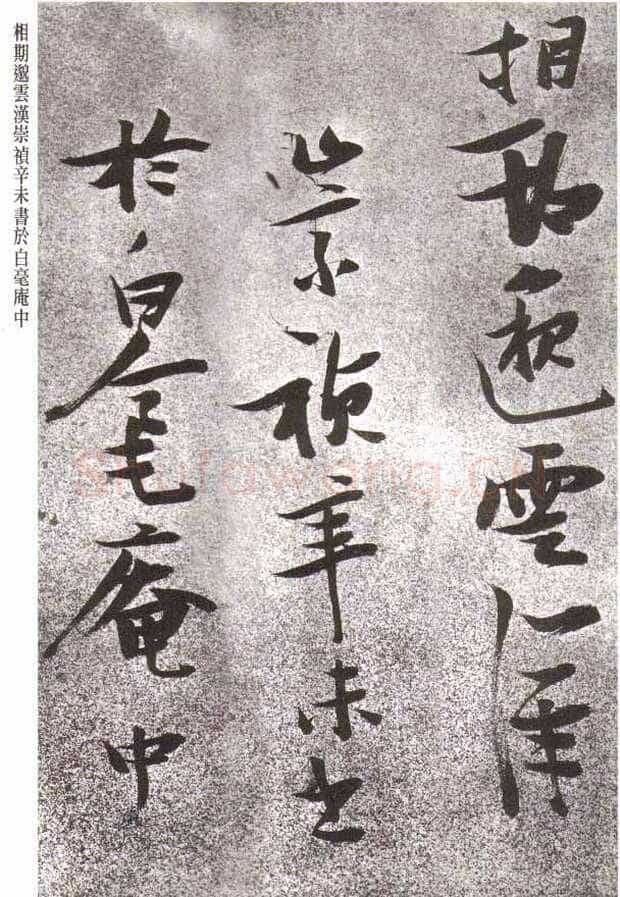 相期邈雲漢
崇禎辛未書
於白毫庵中
相期邈雲漢崇禎辛未書於白毫庵中
shufawang.cn